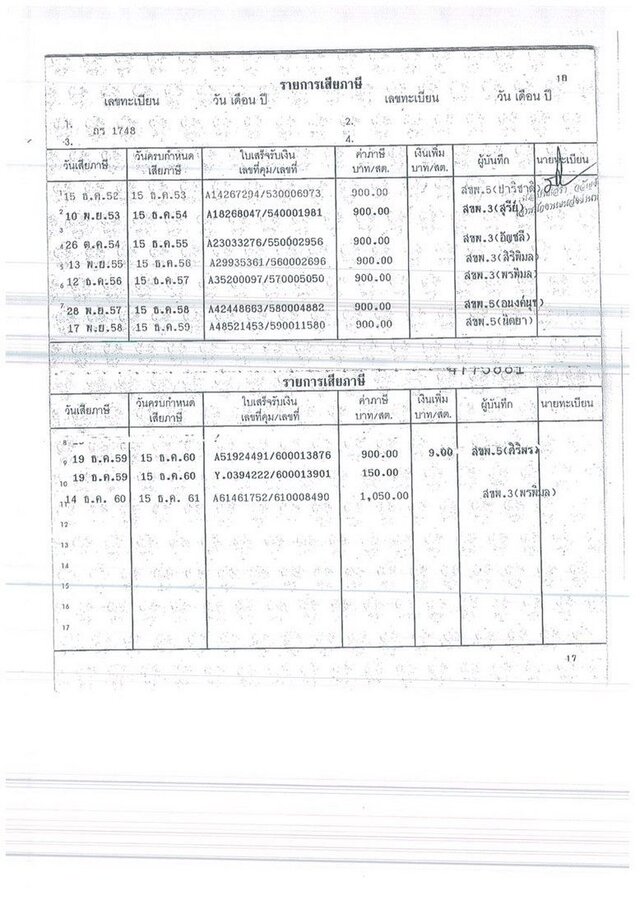 18
รายการเสียภาษี
เลขทะเบียน วัน เดือน ปี เลขทะเบียน วัน เดือน ปี
1. ถร 1748 2.
3. 4.
วันเสียภาษี วันครบกำหนดเสียภาษี ใบเสร็จรับเงิน เลขที่คุม/เลขที่ ค่าภาษี บาท/สต. เงินเพิ่ม บาท/สต. ผู้บันทึก นายทะเบียน
1 15 ธ.ค.52 15 ธ.ค.53 A14267294/530006973 900.00 สขพ.5(ปาริชาติ)
2 10 พ.ย.53 15 ธ.ค.54 A18268047/540001981 900.00 สขพ.3(สุรีย์)
3
4 26 ต.ค.54 15 ธ.ค.55 A23033276/550002956 900.00 สขพ.3(อัญชลี)
5 13 พ.ย.55 15 ธ.ค.56 A29935361/560002696 900.00 สขพ.3(สิริพิมล)
6 12 ธ.ค.56 15 ธ.ค.57 A35200097/570005050 900.00 สขพ.3(พรพิมล)
7 28 พ.ย.57 15 ธ.ค.58 A42448663/580004882 900.00 สขพ.5(อนงค์นุช)
17 พ.ย.58 15 ธ.ค.59 A48521453/590011580 900.00 สขพ.5(นิตยา)
4775881
รายการเสียภาษี
วันเสียภาษี วันครบกำหนดเสียภาษี ใบเสร็จรับเงิน เลขที่คุม/เลขที่ ค่าภาษี บาท/สต. เงินเพิ่ม บาท/สต. ผู้บันทึก นายทะเบียน
8
9 19 ธ.ค.59 15 ธ.ค.60 A51924491/600013876 900.00 9.00 สขพ.5(ศิริพร)
10 19 ธ.ค.59 15 ธ.ค.60 Y.0394222/600013901 150.00
11 14 ธ.ค. 60 15 ธ.ค. 61 A61461752/610008490 1,050.00 สขพ.3(พรพิมล)
12
13
14
15
16
17
17